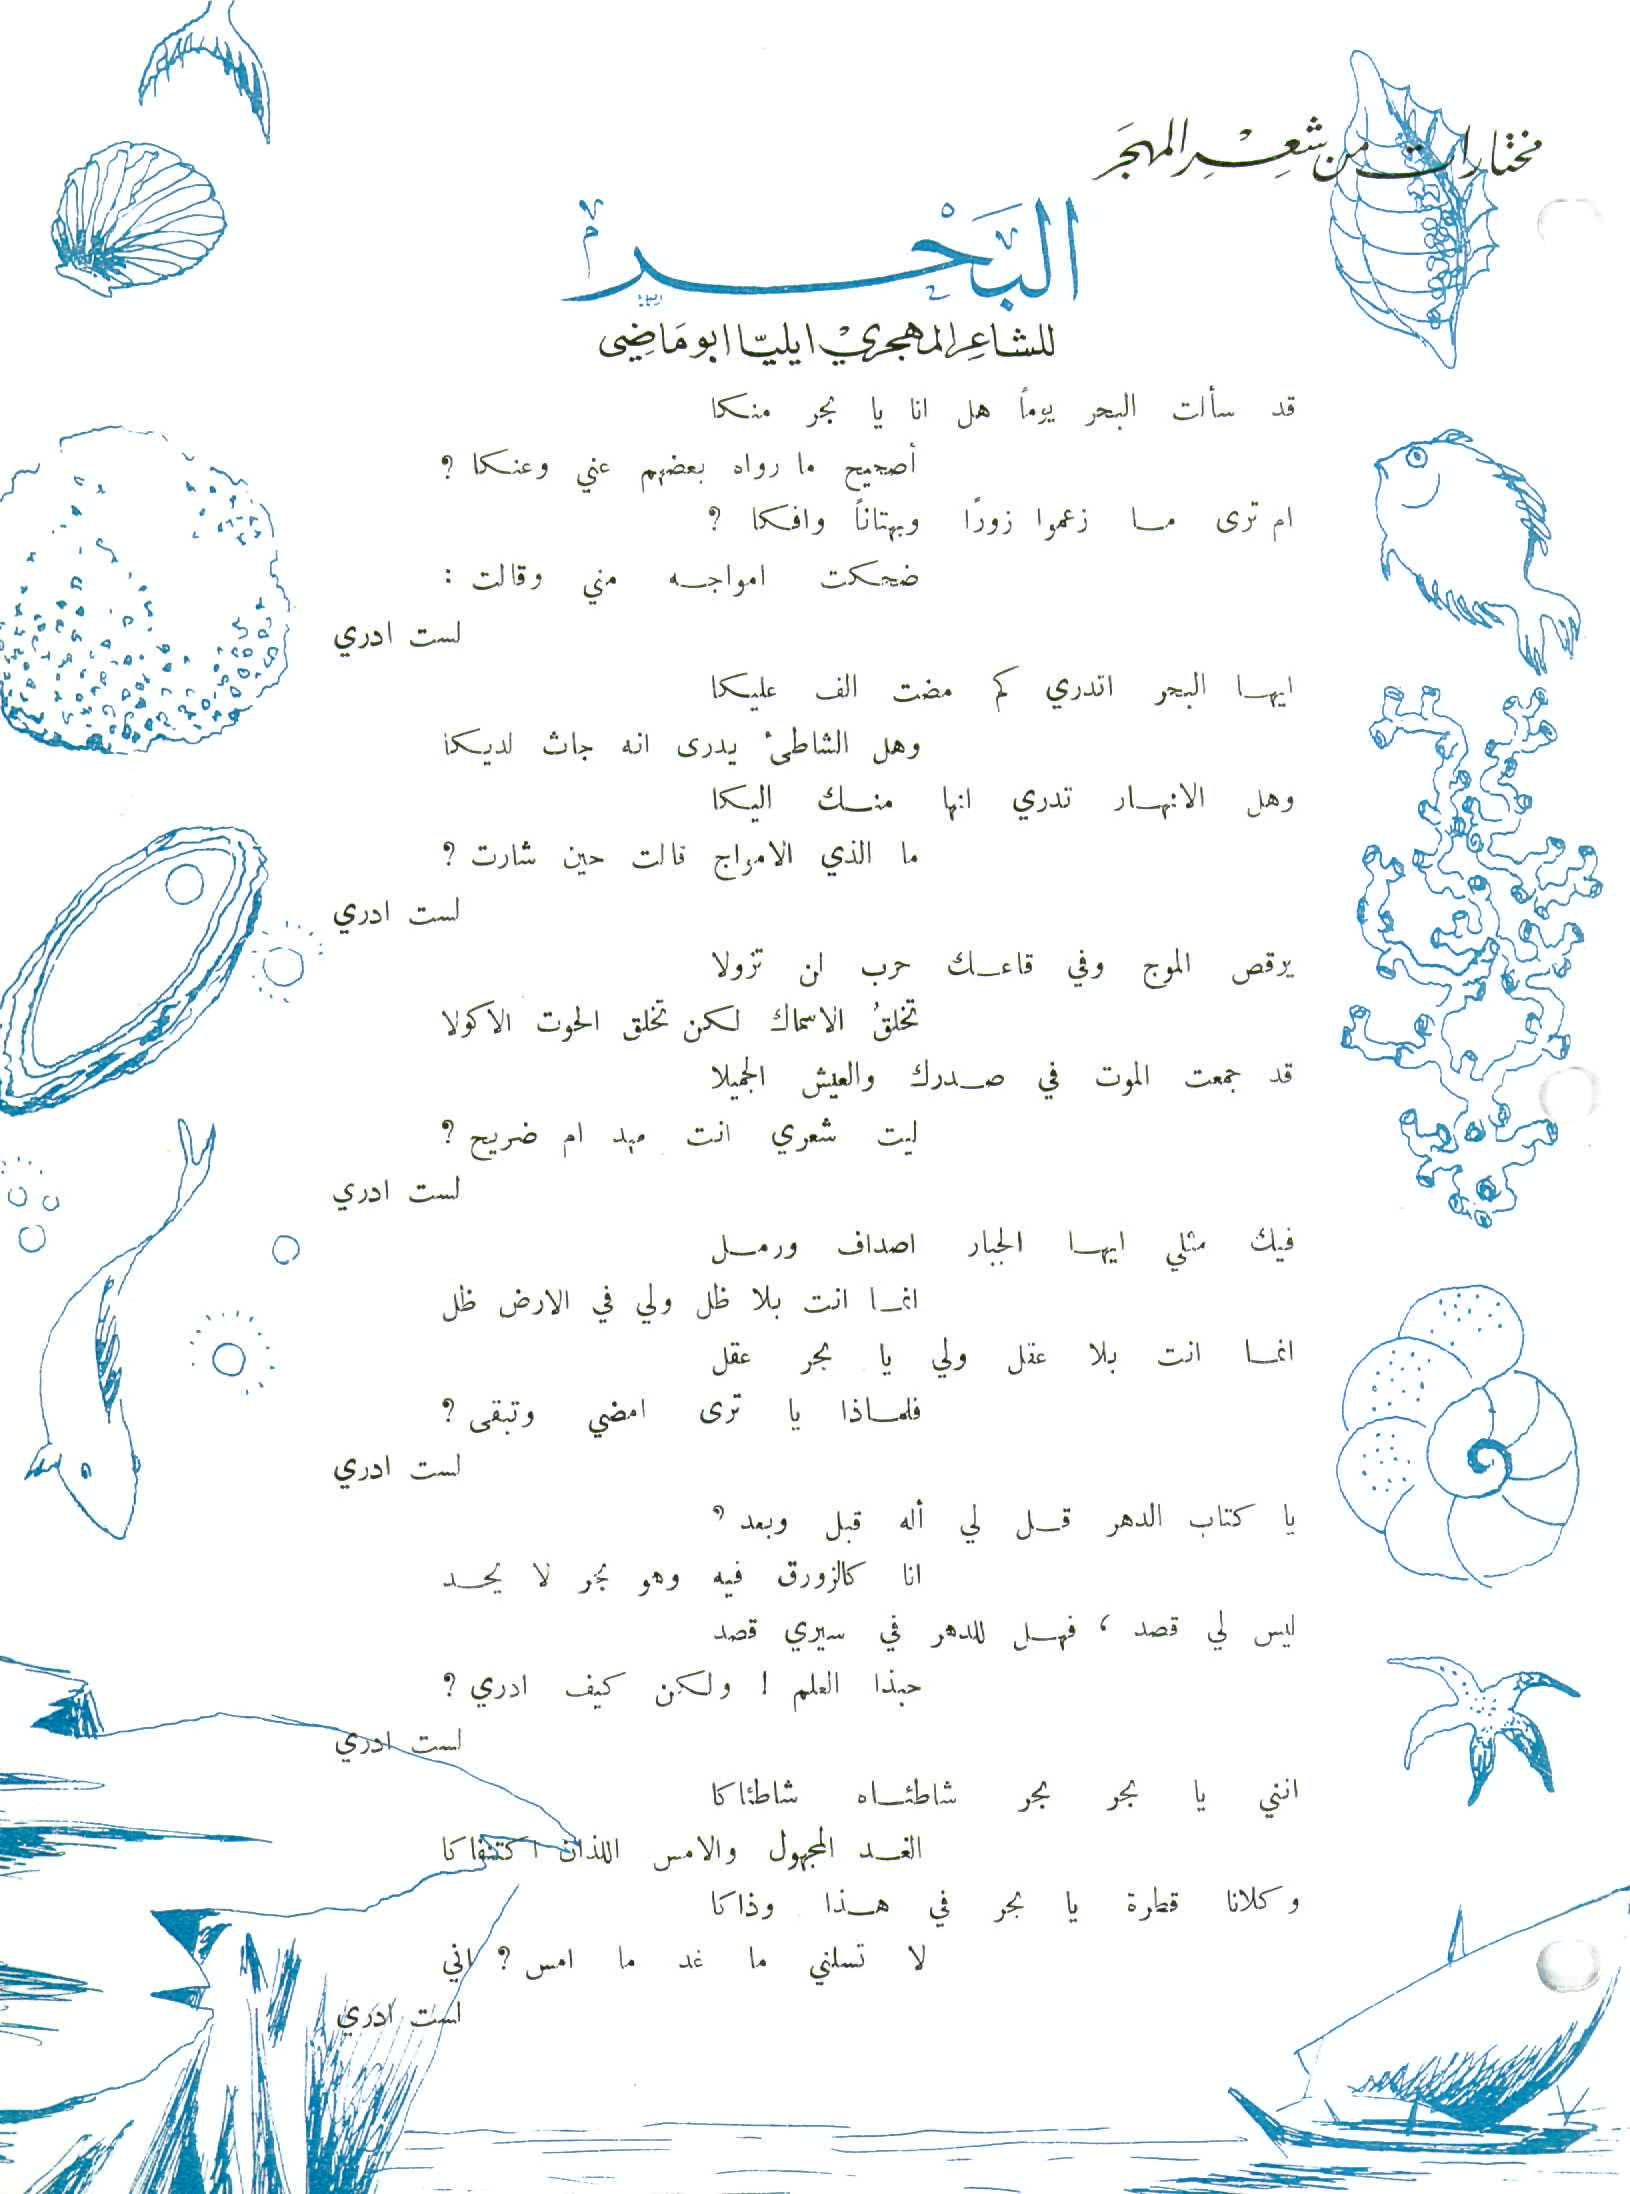 مختارات من شعر المهجر
البحر
للشاعر المهجري ايليا ابو ماضي
قد سألت البحر يوماً هل انا يا بحر منكا
أصحيح ما رواه بعضهم عني وعنكا ؟
ام ترى مـا زعموا زورًا وبهتاناً وافكا ؟
ضحكت امواجه مني وقالت :
لست ادري
ايها البحر اتدري كم مضت الف عليكا
وهل الشاطئ يدرى انه جاث لديكا
وهل الانهار تدري انها منك اليكا
ما الذي الامواج قالت حين ثارت ؟
لست ادري
يرقص الموج وفي قاعك حرب لن تزولا
تخلقُ الاسماك لكن تخلق الحوت الاكولا
قد جمعت الموت في صدرك والعيش الجميلا
ليت شعري انت مهد ام ضريح ؟
لست ادري
فيك مثلي ايها الجبار اصداف ورمل
انما انت بلا ظل ولي في الارض ظل
انما انت بلا عقل ولي يا بحر عقل
فلماذا يا ترى امضي وتبقى ؟
لست ادري
يا كتاب الدهر قل لي أله قبل وبعد ؟
انا كالزورق فيه وهو بحر لا يحد
ليس لي قصد ، فهل للدهر في سيري قصد
حبذا العلم ! ولكن كيف ادري ؟
لست ادري
انني يا بحر بحر شاطئاه شاطئاكا
الغد المجهول والامس اللذان اكتنفاكا
وكلانا قطرة يا بحر في هذا وذاكا
لا تسلني ما غد ما امس ؟ اني
لست ادري